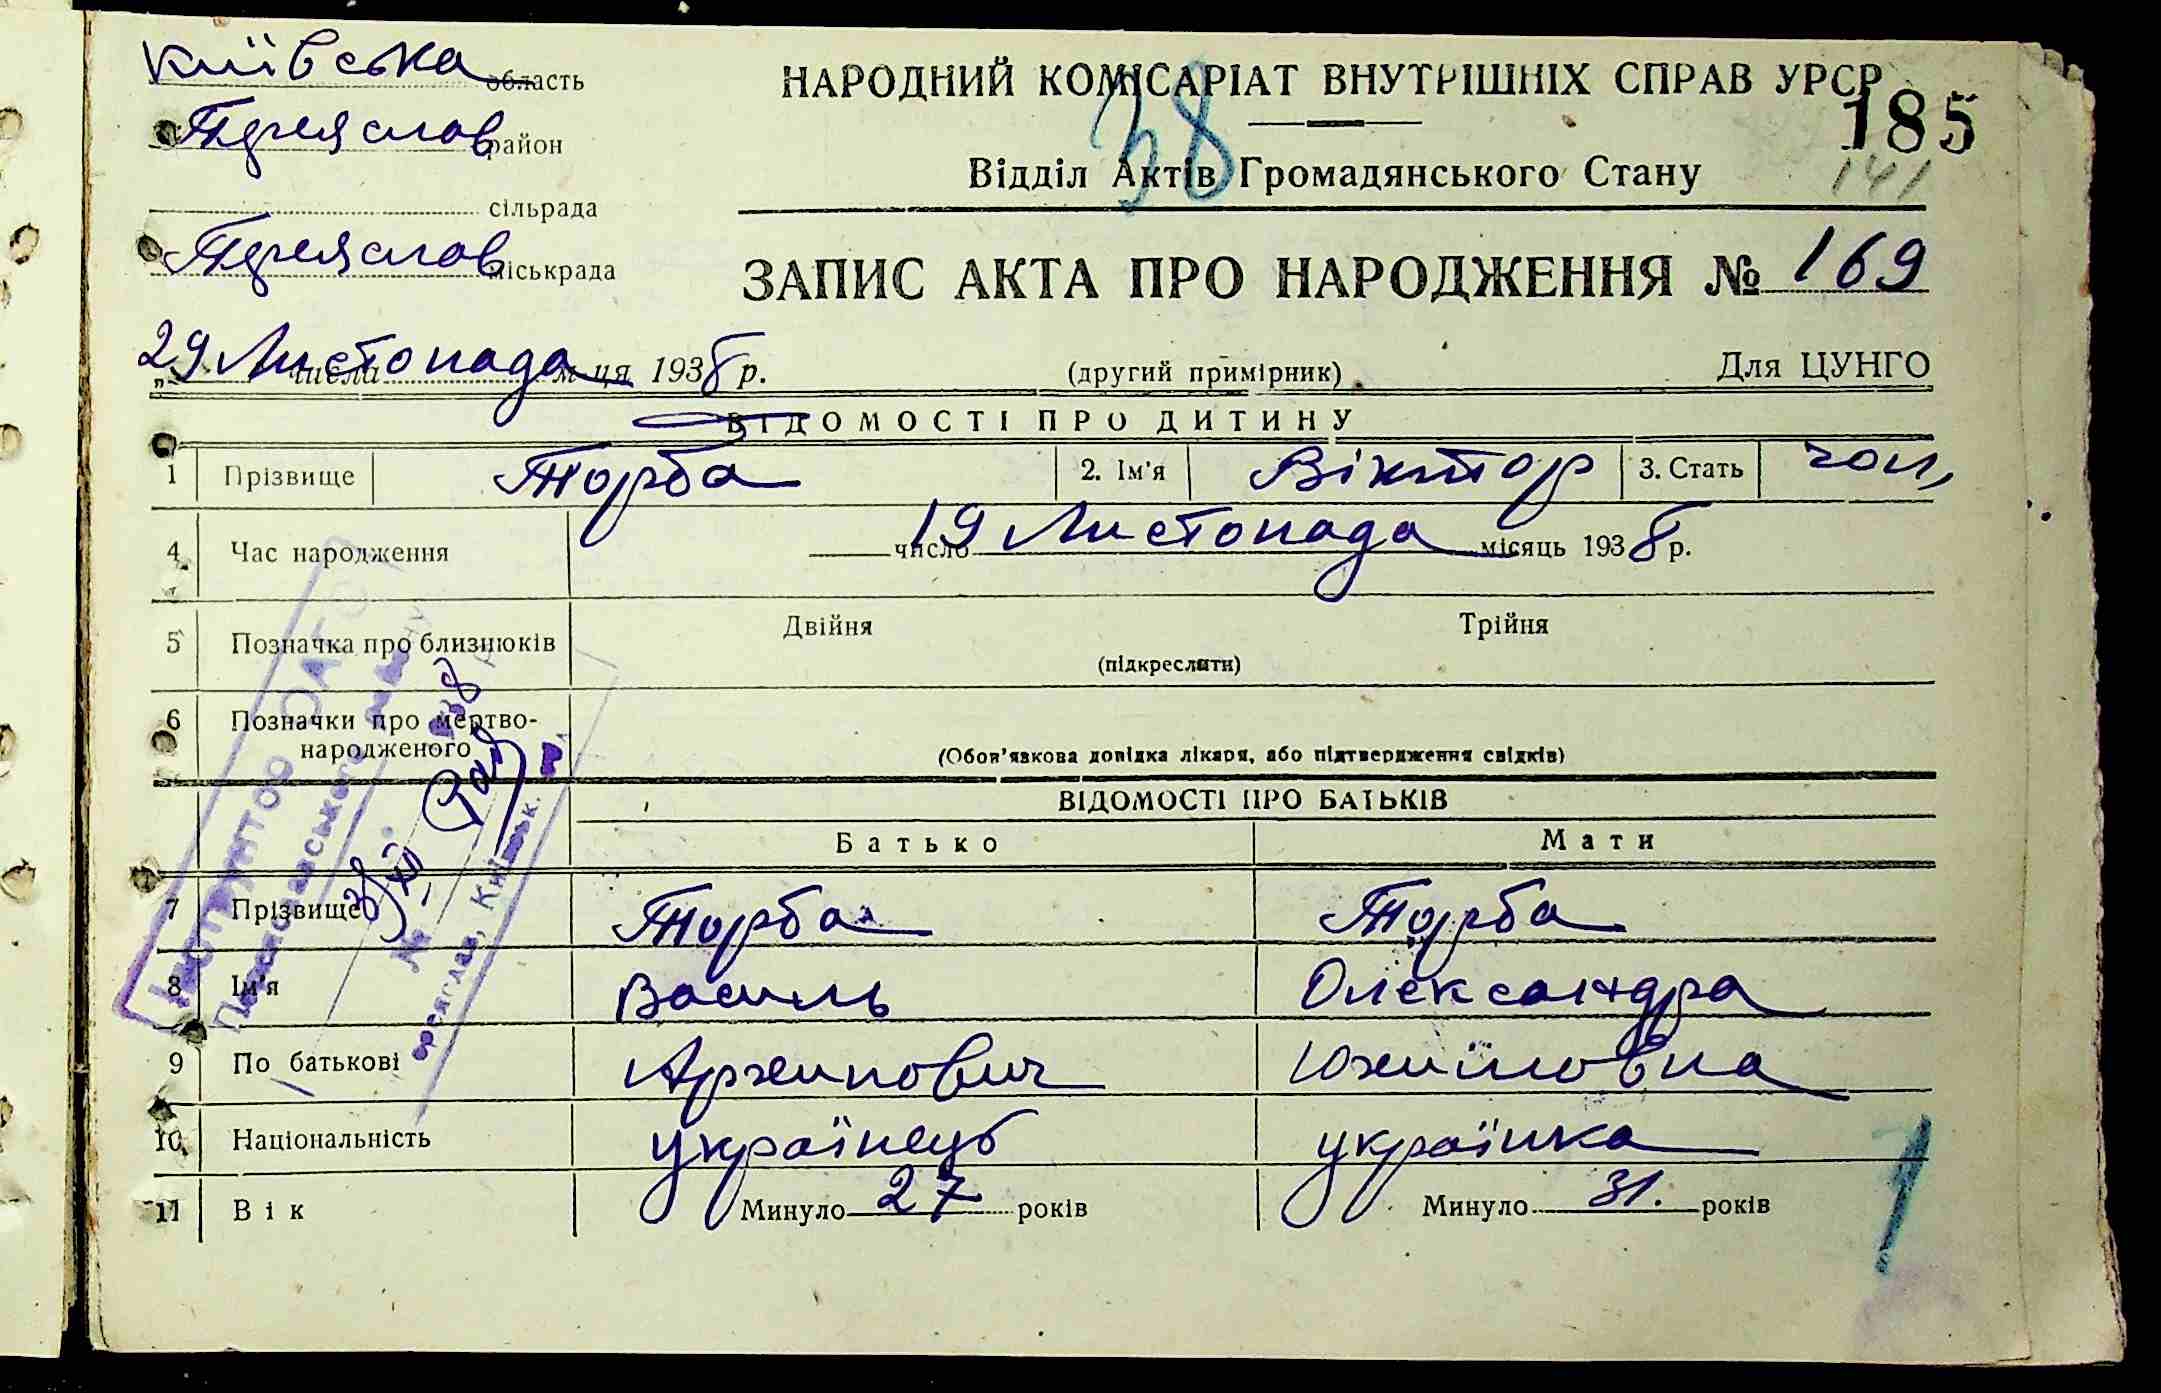 Київська область
НАРОДНИЙ КОМІСАРІАТ ВНУТРІШНІХ СПРАВ УРСР
38
185
Переяслав район
Відділ Актів Громадянського Стану
141
сільрада
Переяслав міськрада
ЗАПИС АКТА ПРО НАРОДЖЕННЯ № 169
„29 числа Листопада м-ця 1938 р.
(другий примірник)
Для ЦУНГО
ВІДОМОСТІ ПРО ДИТИНУ
1 Прізвище Торба 2. Ім'я Віктор 3. Стать чол,
4 Час народження 19 число Листопада місяць 1938 р.
5 Позначка про близнюків Двійня Трійня
(підкреслити)
6 Позначки про мертво-
народженого
(Обов'язкова довідка лікаря, або підтвердження свідків)
ВІДОМОСТІ ПРО БАТЬКІВ
Батько Мати
7 Прізвище Торба Торба
8 Ім'я Василь Олександра
9 По батькові Архипович Юхимовна
10 Національність українець українка
11 Вік Минуло 27 років Минуло 31. років
1